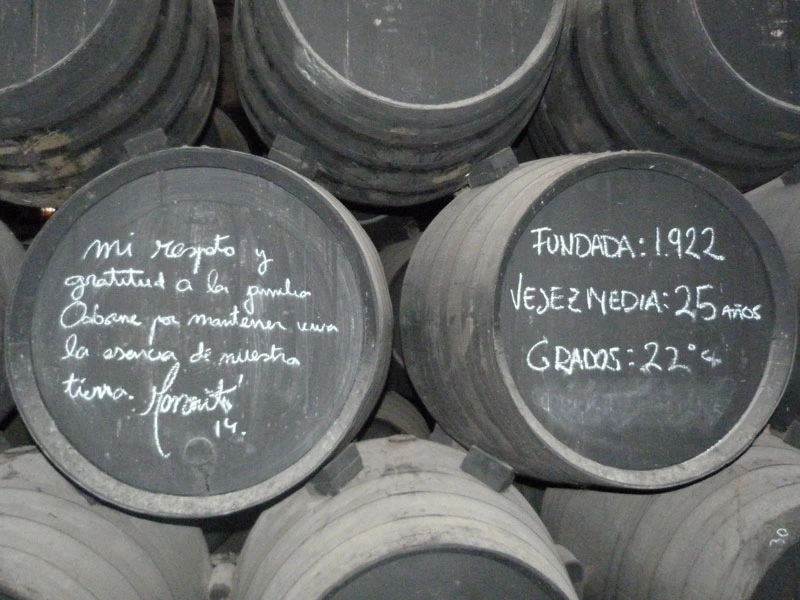 mi respeto y
gratitud a la familia
Osborne por mantener viva
la esencia de nuestra
tierra.
14.
FUNDADA: 1.922
VEJEZ MEDIA: 25 AÑOS
GRADOS: 22°
30